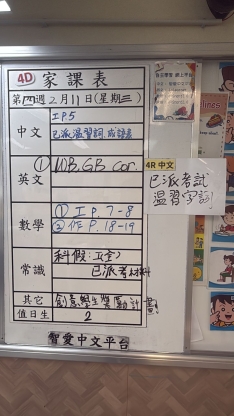 4D 家課表
第四週2月11日(星期三)
中文
工P.5
已派溫習詞,成語表
英文
① WB, GB Cor.
數學
① 工P.7-8
② 作P.18-19
常識
科假:工(全)
已派考材料
其它
創意學生獎勵計劃
值日生
2
智愛中文平台
4R 中文
已派考試
溫習字詞